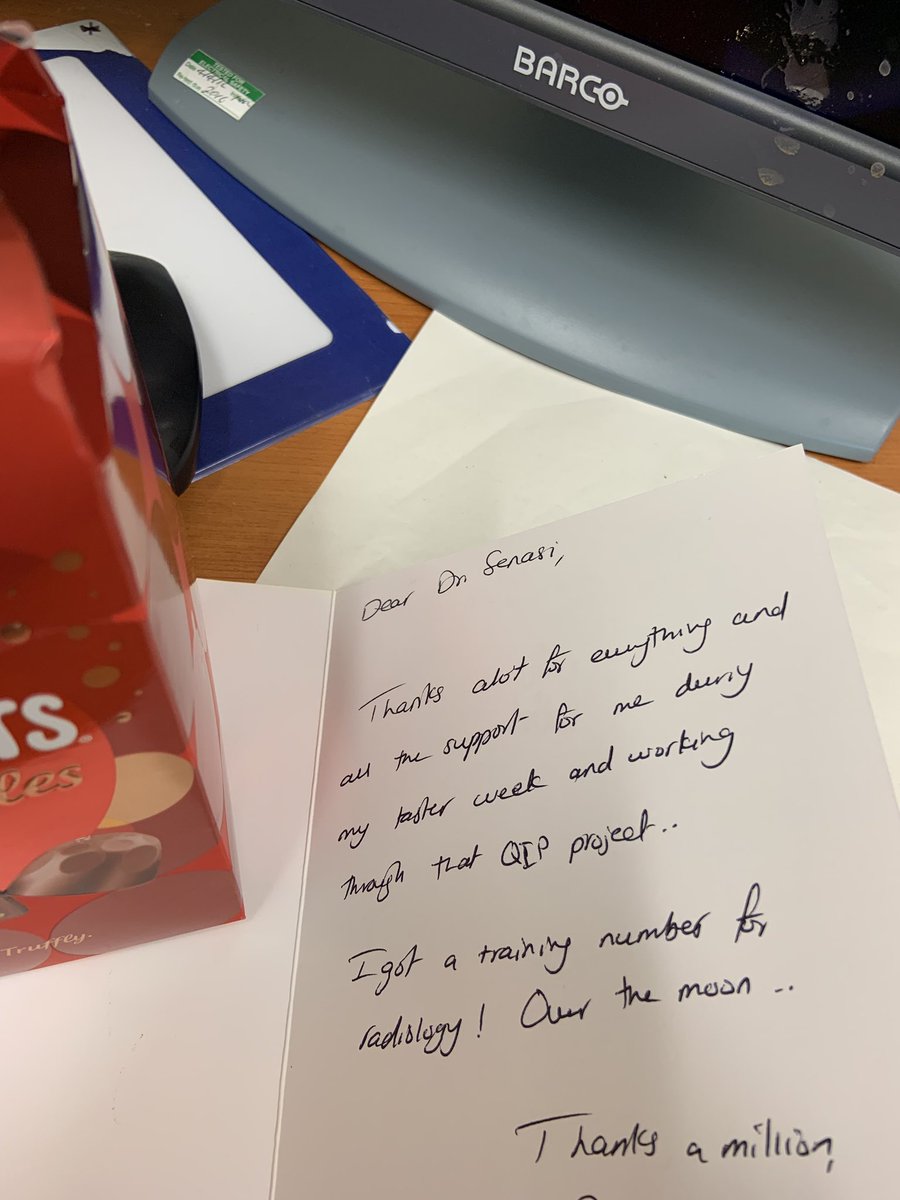 BARCO
TESTED FOR
ELECTRICAL SAFETY
TS
les
Truffley.
Dear Dr Senasi,
Thanks alot for everything and
all the support for me during
my taster week and working
through that QIP project..
I got a training number for
radiology! Over the moon ..
Thanks a million,